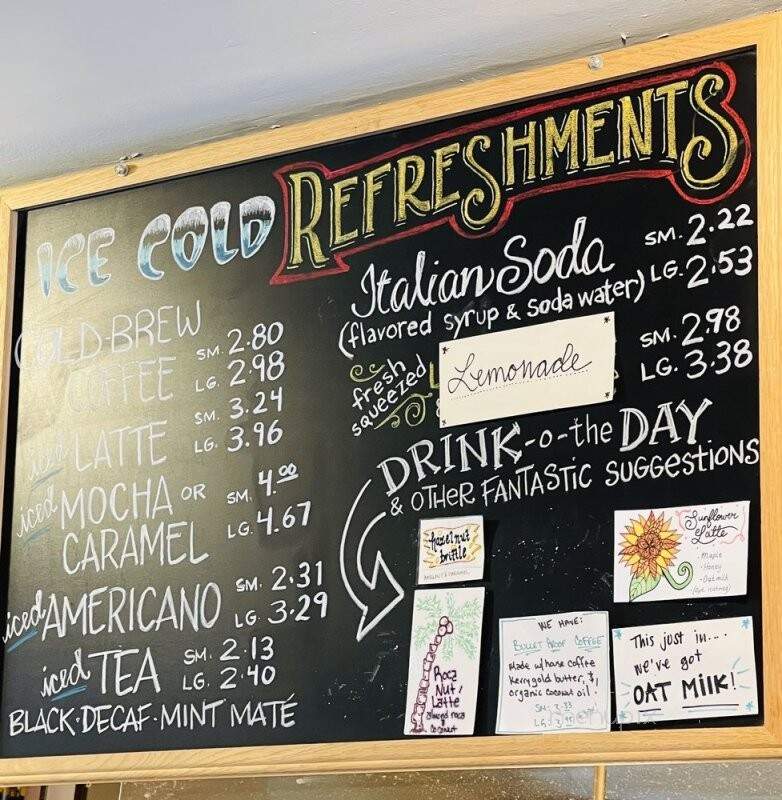 ICE COLD REFRESHMENTS
COLD-BREW
COFFEE SM. 2.80
LG. 2.98
iced LATTE SM. 3.24
LG. 3.96
iced MOCHA OR
CARAMEL SM. 4.00
LG. 4.67
iced AMERICANO SM. 2.31
LG. 3.29
iced TEA SM. 2.13
LG. 2.40
BLACK·DECAF·MINT MATÉ
Italian Soda SM. 2.22
(flavored syrup & soda water) LG. 2.53
fresh
squeezed
Lemonade SM. 2.98
LG. 3.38
DRINK-o-the DAY
& OTHER FANTASTIC SUGGESTIONS
hazelnut
truffle
HAZELNUT & CARAMEL
Sunflower
Latte
· Maple
· Honey
· Oatmilk
Roca
Nut
Latte
almond roca
& coconut
WE HAVE:
BULLET PROOF COFFEE
Made w/house coffee
Kerrygold butter, &
organic coconut oil.
SM:
LG:
This just in....
we've got
OAT MILK!